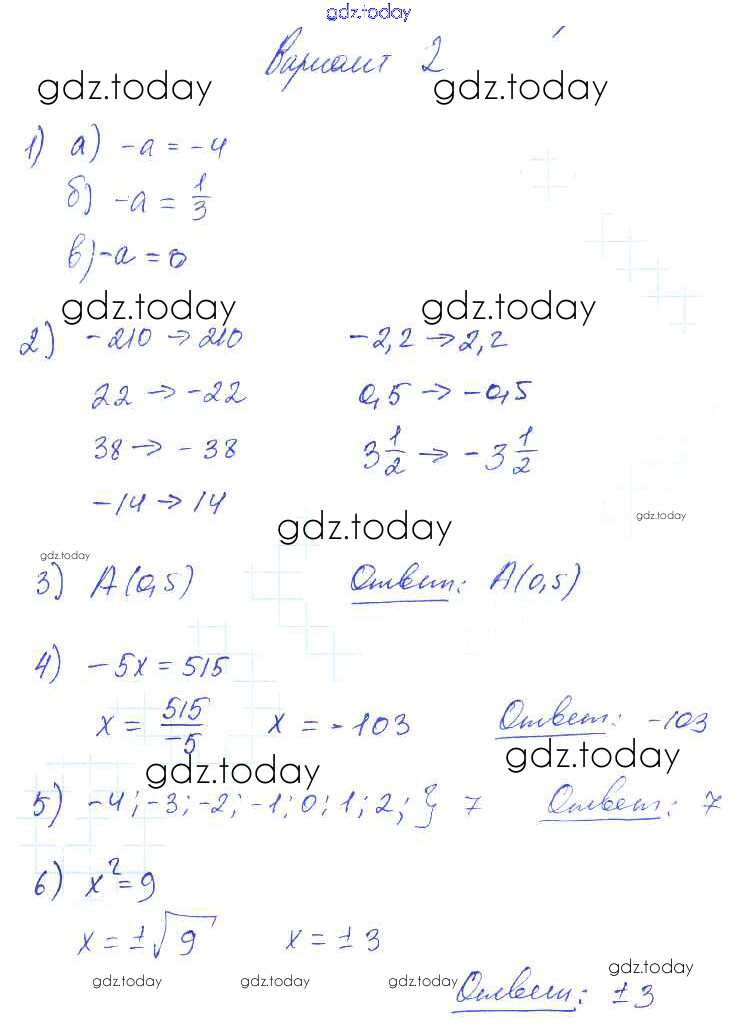 gdz.today
Вариант 2
gdz.today gdz.today
1) а) -a = -4
б) -a = 1/3
в) -a = 0
gdz.today gdz.today
2) -210 → 210 -2,2 → 2,2
22 → -22 0,5 → -0,5
38 → -38 3 1/2 → -3 1/2
-14 → 14
gdz.today
gdz.today
gdz.today
3) A(0,5) Ответ: A(0,5)
4) -5x = 515
x = 515/-5 x = -103 Ответ: -103
gdz.today gdz.today
5) -4; -3; -2; -1; 0; 1; 2; } 7 Ответ: 7
6) x² = 9
x = ±√9 x = ±3
gdz.today gdz.today gdz.today gdz.today
Ответ: ±3